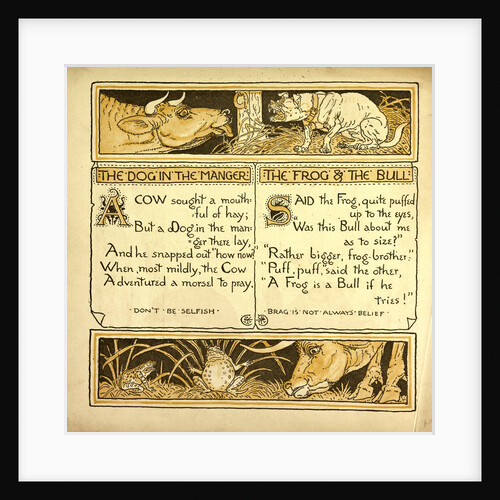 THE DOG IN THE MANGER
A COW sought a mouth-
ful of hay;
But a Dog in the man-
ger there lay,
And he snapped out "how now?"
When, most mildly, the Cow
Adventured a morsel to pray.
· DON'T · BE · SELFISH ·
THE FROG & THE BULL
SAID the Frog, quite puffed
up to the eyes,
"Was this Bull about me
as to size?"
"Rather bigger, frog-brother."
"Puff, puff," said the other,
"A Frog is a Bull if he
tries!"
BRAG · IS · NOT · ALWAYS · BELIEF ·